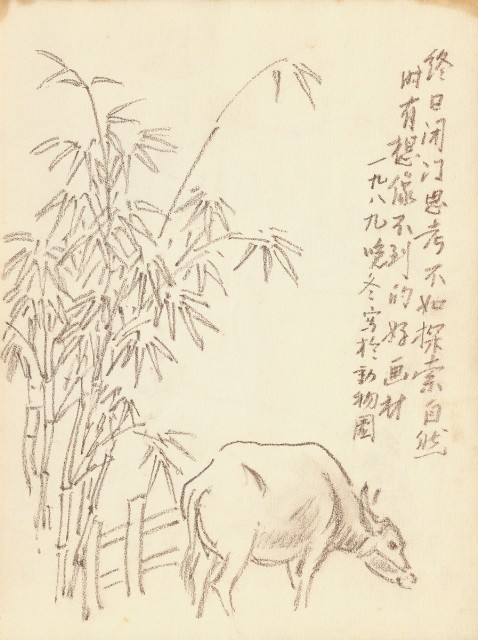 終日闭门思考不如探索自然
时有想像不到的好画材
一九八九晚冬写於動物園